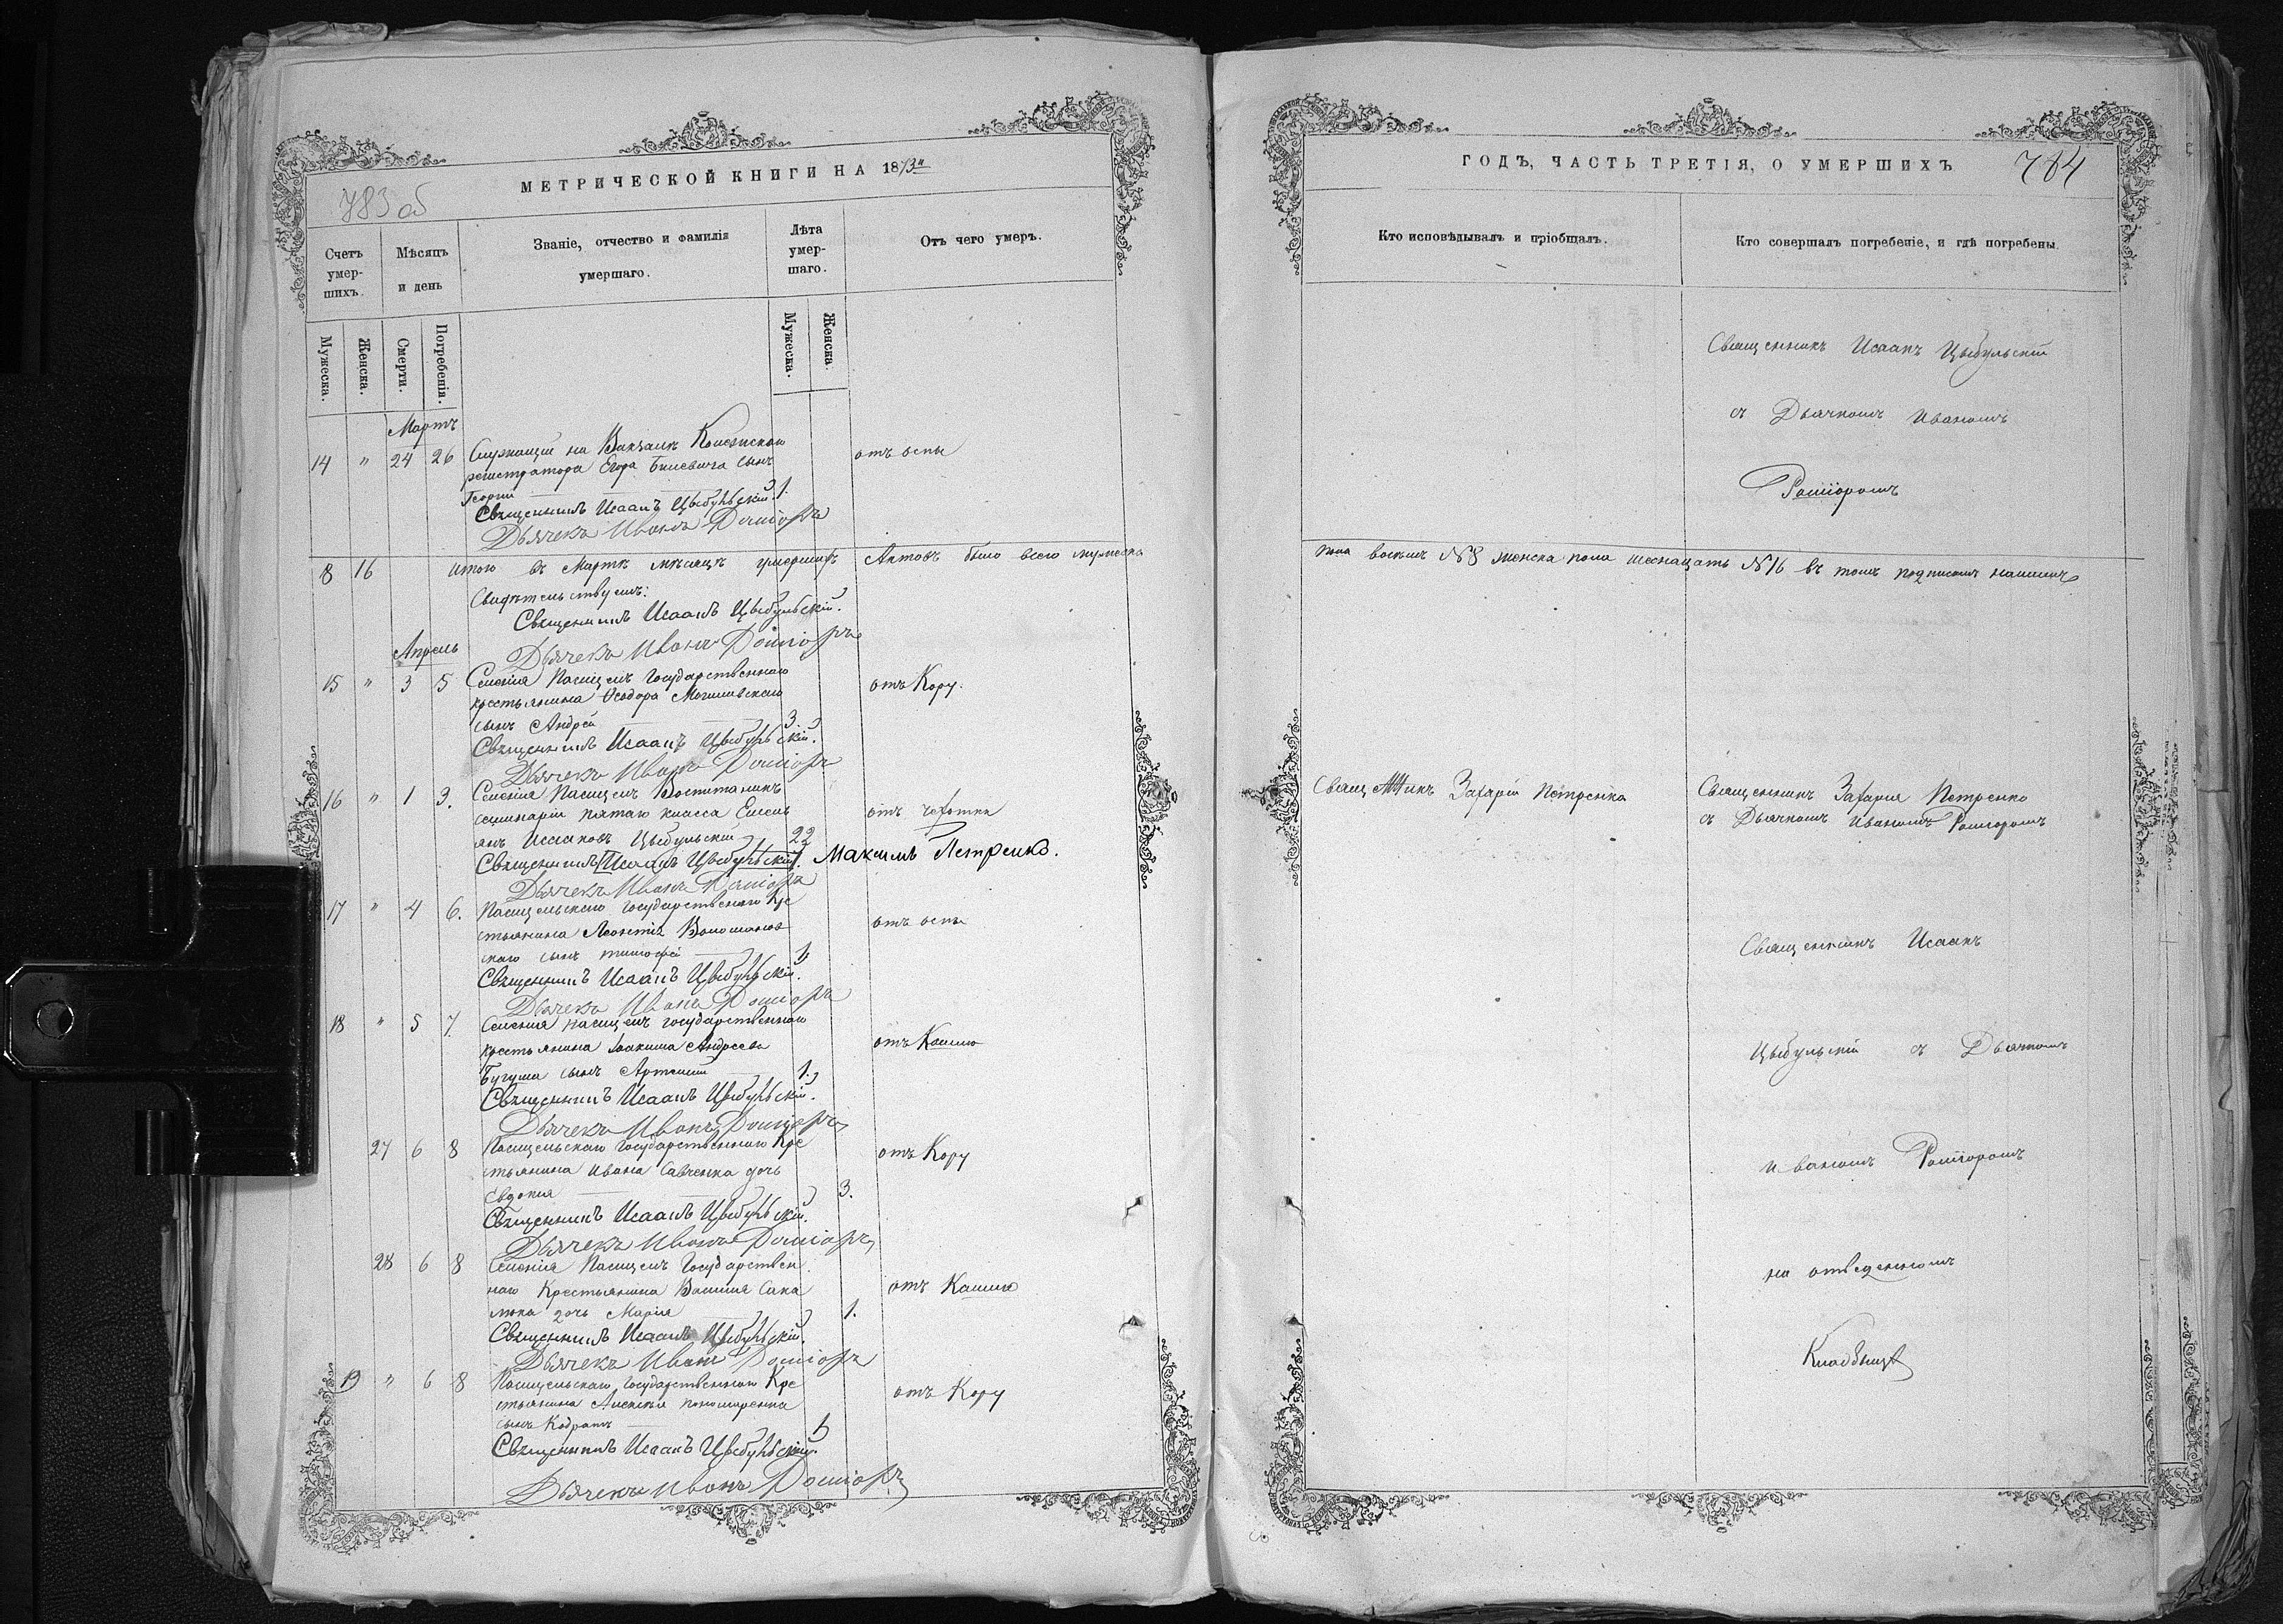 МЕТРИЧЕСКОЙ КНИГИ НА 1873й
783 об
Счетъ умер-шихъ.
Мѣсяцъ и день
Званіе, отчество и фамилія умершаго.
Лѣта умер-шаго.
Отъ чего умеръ.
Мужеска.
Женска.
Смерти.
Погребенія.
Мужеска.
Женска.
Мартъ
14 " 24 26 Служащій на Вакзалѣ Колежскаго отъ оспы
регистратора Егора сынъ
Георгій 1.
Священникъ Исаакъ Цыбульскій.
Дьячекъ Иванъ
8 16 Итого въ Мартѣ мѣсяцѣ умершихъ Актовъ было всего мужеска
Свидѣтельствуемъ:
Священникъ Исаакъ Цыбульскій.
Дьячекъ Иванъ
Апрель
15 " 3 5 Селенія Пасицелъ Государственнаго отъ Кору.
крестьянина Феодора Могилевскаго
сынъ Андрей 3.
Священникъ Исаакъ Цыбульскій.
Дьячекъ Иванъ
16 " 1 3. Селенія Пасицелъ Воспитаникъ
семинаріи пятаго класса Емель отъ чехотки
янъ Исааковъ Цыбульскій 22
Священникъ Исаакъ Цыбульскій. Максимъ Петренко.
Дьячекъ Иванъ
17 " 4 6. Пасицельскаго Государственаго Кре
стьянина Леонтія отъ оспы
скаго сынъ тимофей 1
Священникъ Исаакъ Цыбульскій.
Дьячекъ Иванъ
18 " 5 7. Селенія пасицелъ государственнаго
крестьянина Іоакима Андреева отъ Кашлю
Бугуша сынъ Артемій 1.
Священникъ Исаакъ Цыбульскій.
Дьячекъ Иванъ
27 6 8 Пасицельскаго Государственнаго Кре отъ Кору
стьянина Ивана Савченка дочь
Евдокія 3.
Священникъ Исаакъ Цыбульскій.
Дьячекъ Иванъ
28 6 8 Селенія Пасицелъ Государствен
наго Крестьянина Василія отъ Кашлю
дочь Марія 1.
Священникъ Исаакъ Цыбульскій.
Дьячекъ Иванъ
19 " 6 8 Пасицельскаго государственнаго Кре отъ Кору
стьянина Алексѣя пономаренка
сынъ Кодратъ
Священникъ Исаакъ Цыбульскій.
Дьячекъ Иванъ
ГОДЪ, ЧАСТЬ ТРЕТІЯ, О УМЕРШИХЪ
784
Кто исповѣдывалъ и пріобщалъ.
Кто совершалъ погребеніе, и гдѣ погребены.
Священникъ Исаакъ Цыбульскій
съ Дьячкомъ Иваномъ
пола восьмъ №8 женска пола шеснацать №16 въ томъ подписомъ нашимъ
Священникъ Захарій Петренко
Священникъ Захарія Петренко
съ Дьячкомъ Иваномъ
Священникъ Исаакъ
Цыбульскій съ Дьячкомъ
Иваномъ
на отведенномъ
Кладбищѣ